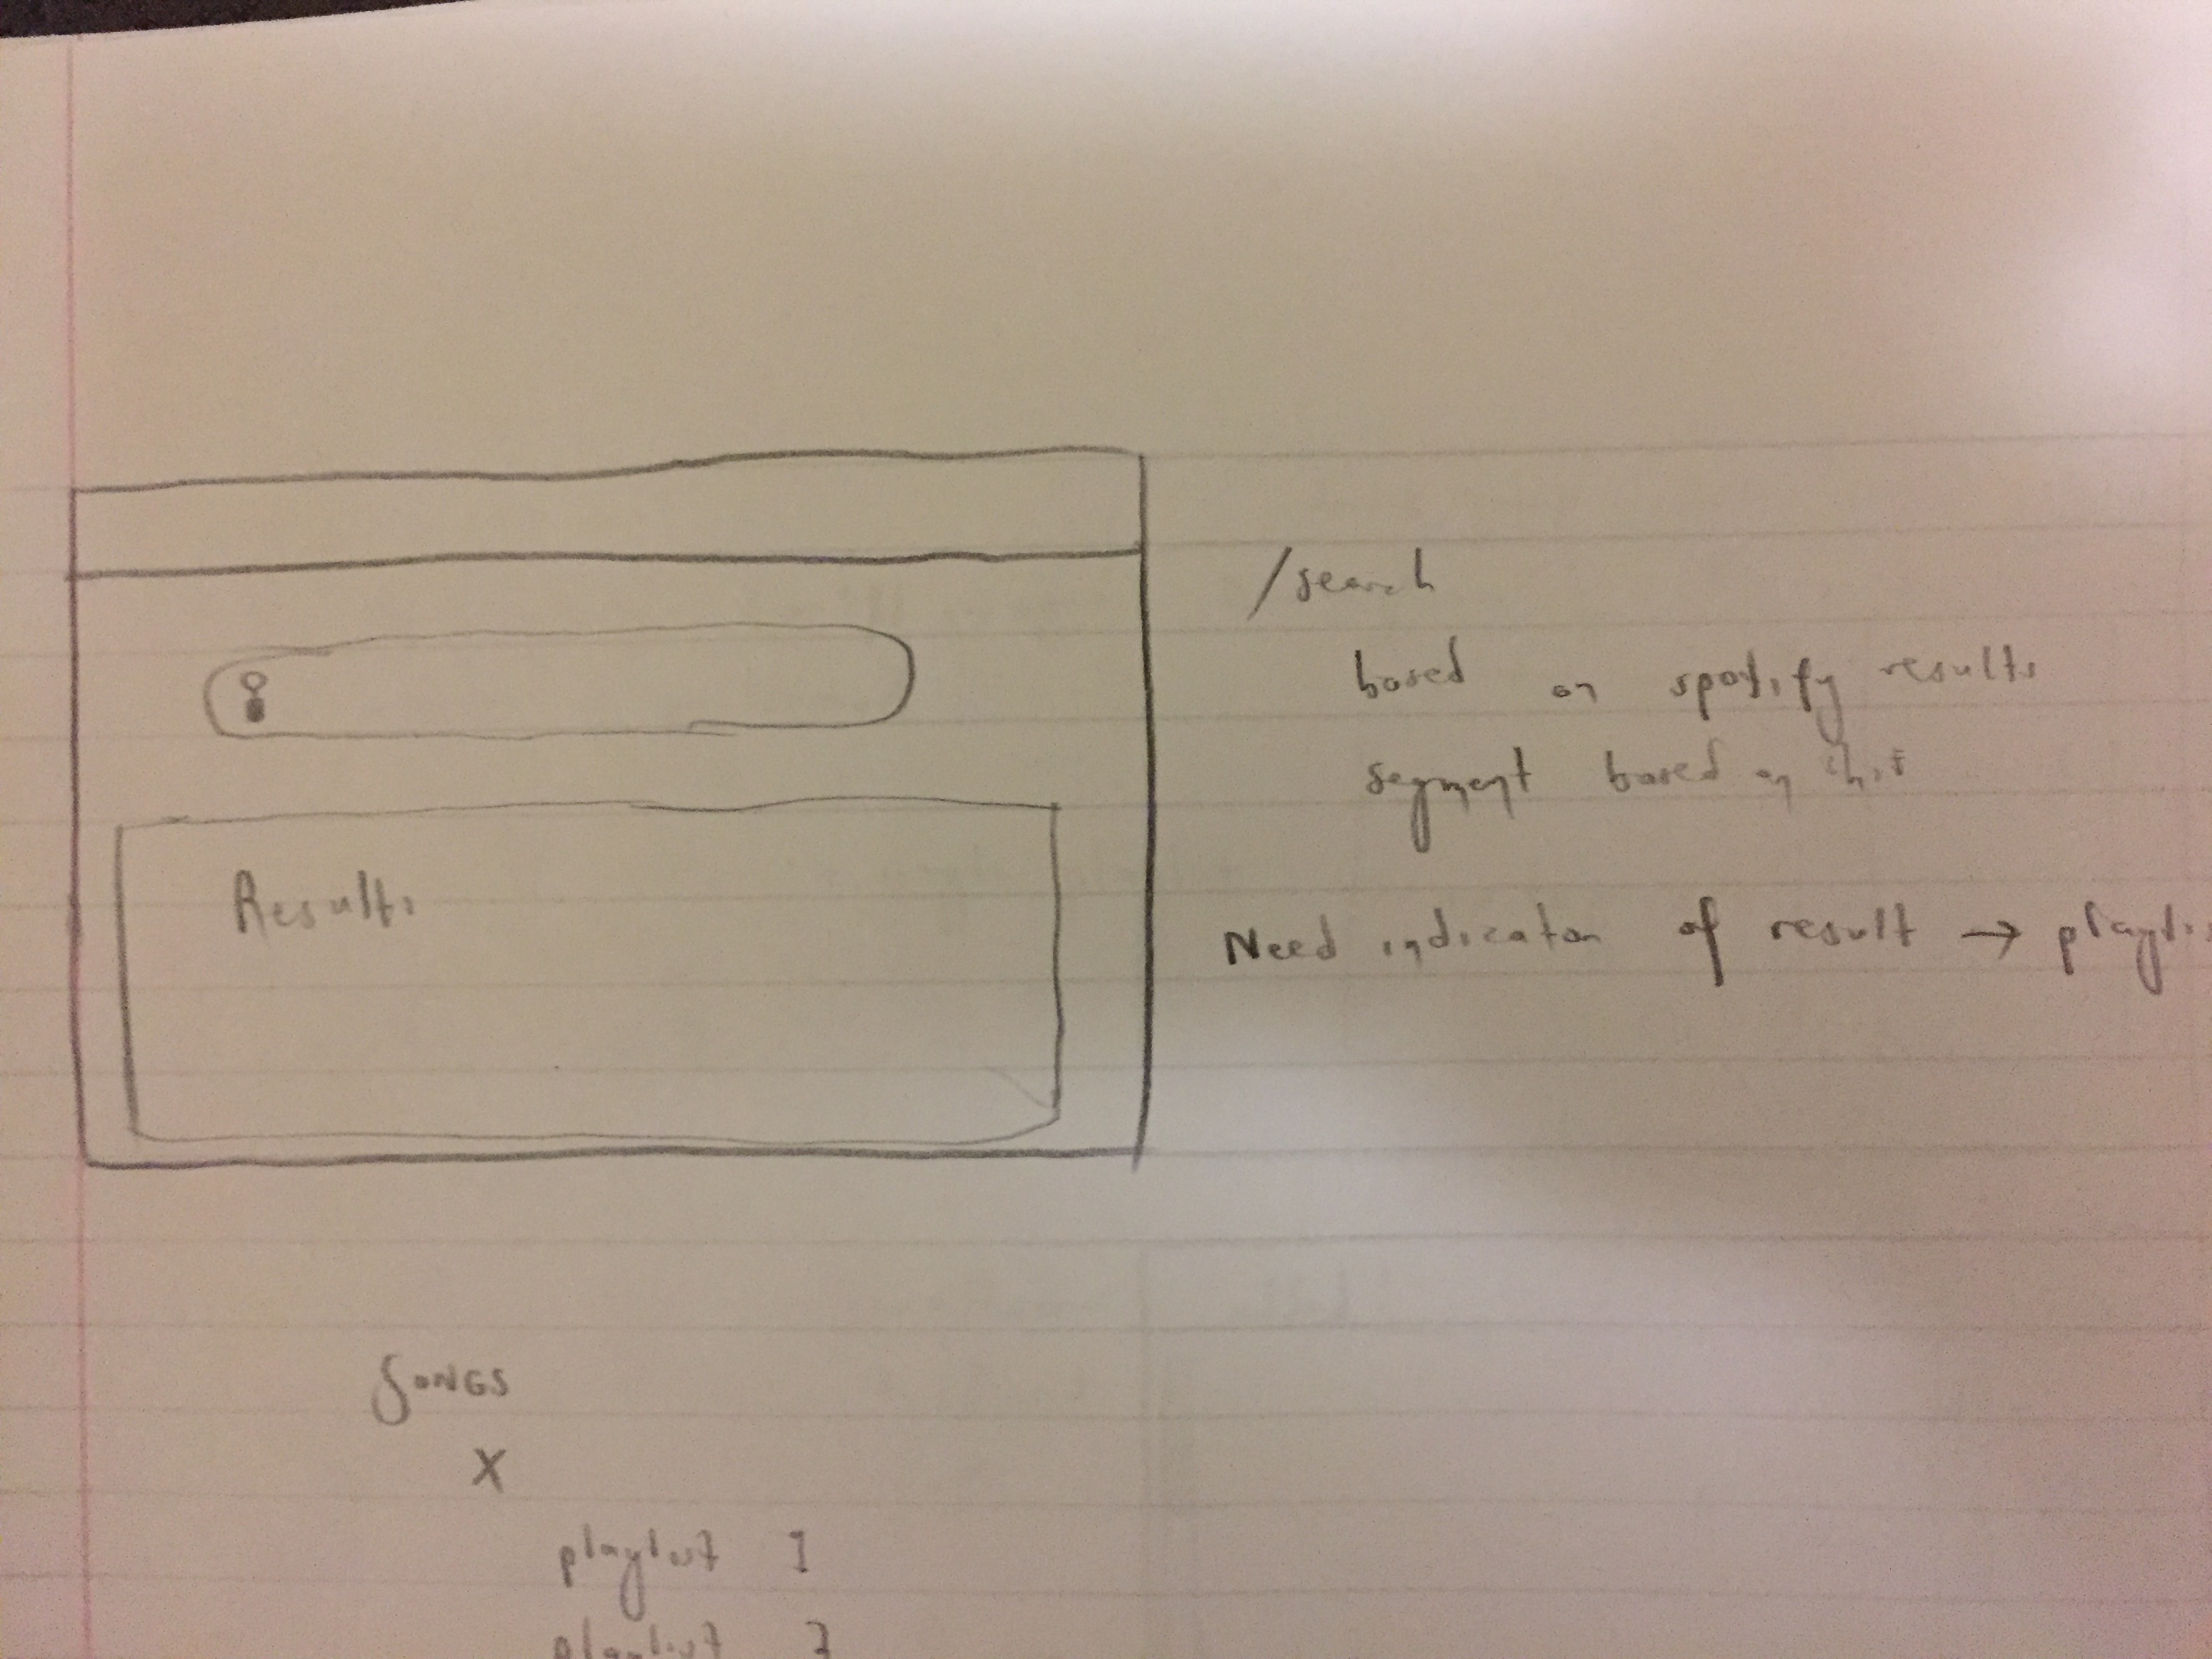 /search
based on spotify results
segment based on this
Results
Need indicator of result → playlis
SONGS
X
playlist 1
playlist 2